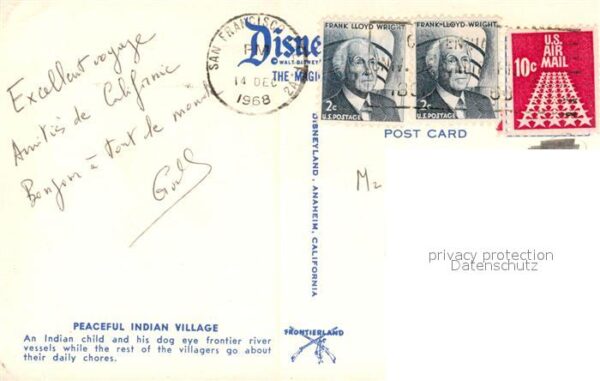 Excellent voyage
Amitiés de Californie
Bonjour à tout le monde
SAN FRANCISCO
PM
14 DEC
1968
Disney
© WALT DISNEY
THE MAGI
FRANK LLOYD WRIGHT
2c
U.S. POSTAGE
FRANK LLOYD WRIGHT
2c
U.S. POSTAGE
U.S.
AIR
MAIL
10c
POST CARD
DISNEYLAND, ANAHEIM, CALIFORNIA
privacy protection
Datenschutz
PEACEFUL INDIAN VILLAGE
An Indian child and his dog eye frontier river
vessels while the rest of the villagers go about
their daily chores.
FRONTIERLAND